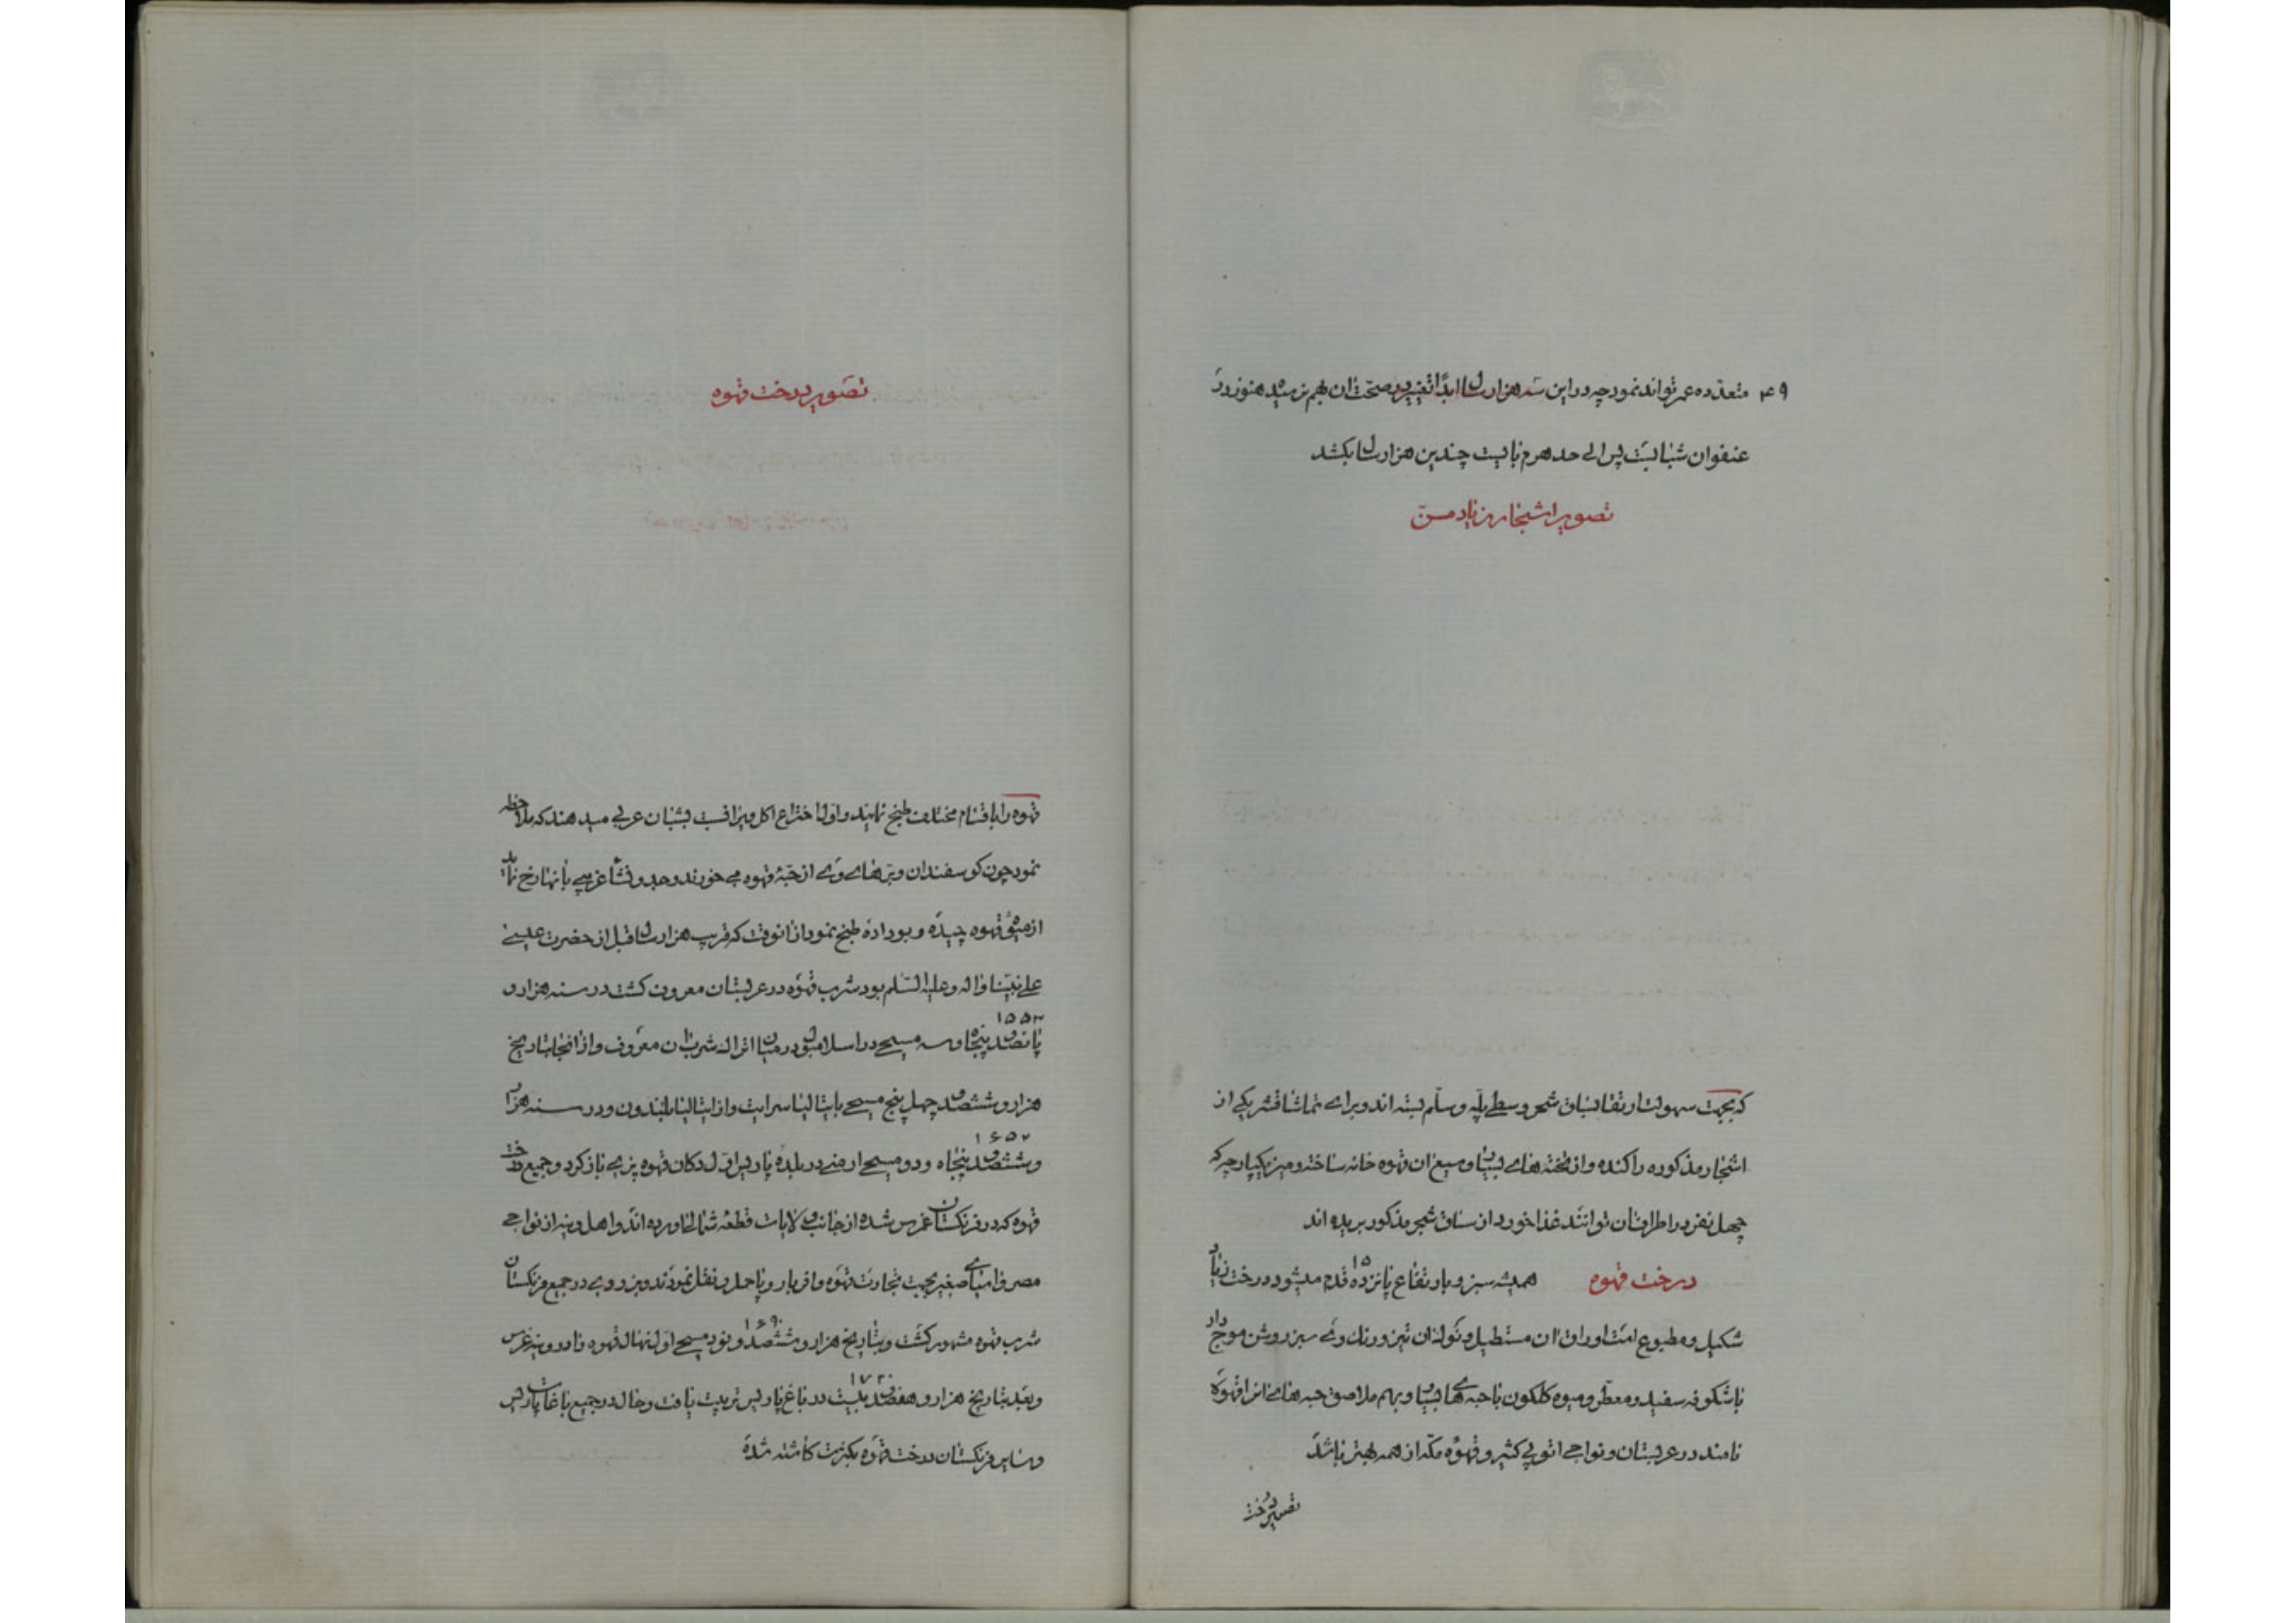 ۴۹ متعدده عمر تواند نمود چه در این سه هزار سال ابداً تغییر در صحت ان بهم نرسیده هنوز در
عنفوان شبابست پس الی حد هرم بایست چندین هزار سال بکشد
تصویر اشجار زیاد مسن
که بجهت سهولت ارتقا بساق شجر وسطی پله و سلّم بسته اند و برای تماشا قشر یکی از
اشجار مذکوره را کنده و از تخته های بسیار وسیع ان قهوه خانه ساخته و میز یکپارچه که
چهل نفر در اطراف ان توانند غذا خورد از ساق شجر مذکور بریده اند
درخت قهوه همیشه سبز و بارتفاع پانزده ۱۵ قدم میشود درخت زیاد
شکیل و مطبوع است اوراق ان مستطیل و نوک ان تیز و رنک وی سبز روشن موج دار
با شکوفه سفید و معطر و میوه کلکون با حبه های بسیار و بهم ملاصق حبه های انرا قهوه
نامند در عربستان و نواحی اتوپی کثیر و قهوه مکه از همه بهتر باشد
تصویر درخت
تصویر درخت قهوه
قهوه را باقسام مختلف طبخ نمایند و اول اختراع اکل ویرا نسبت بشبان عربی میدهند که ملاحظه
نمود چون کوسفندان و بزهای وی از حبّه قهوه می خورند وجد و نشاء غریبی بانها رخ نماید
از میوه قهوه چیده و بو داده طبخ نمود از انوقت که قریب هزار سال قبل از حضرت عیسی
علی نبینا و اله و علیه السّلم بود شرب قهوه در عربستان معروف کشت در سنه هزار و
پانصد پنجاه و سه ۱۵۵۳ مسیحی در اسلامبول در میان اتراک شرب ان معروف و از انجا بتاریخ
هزار و ششصد چهل پنج مسیحی بایتالیا سرایت و از ایتالیا بلندون و در سنه هزار
و ششصد پنجاه و دو ۱۶۵۲ مسیحی ارمنی در بلده پاریس اوّل دکان قهوه پزی باز کرد و جمیع درخت
قهوه که در فرنکستان غرس شده از جانب ولایات قطعه شمالی اورده اند و اهل وینیز از نواحی
مصر و اسیای صغیر بجهت تجارت قهوه و افر بار و پا حمل و نقل نمودند و بزودی در جمیع فرنکستان
شرب قهوه مشهور کشت و بتاریخ هزار و ششصد و نود ۱۶۹۰ مسیحی اول نهال قهوه را در وینه غرس
و بعد بتاریخ هزار و هفصد بیست ۱۷۲۰ در باغ پاریس تربیت یافت و حال در جمیع باغات پاریس
و سایر فرنکستان درخت قهوه بکثرت کاشته شده